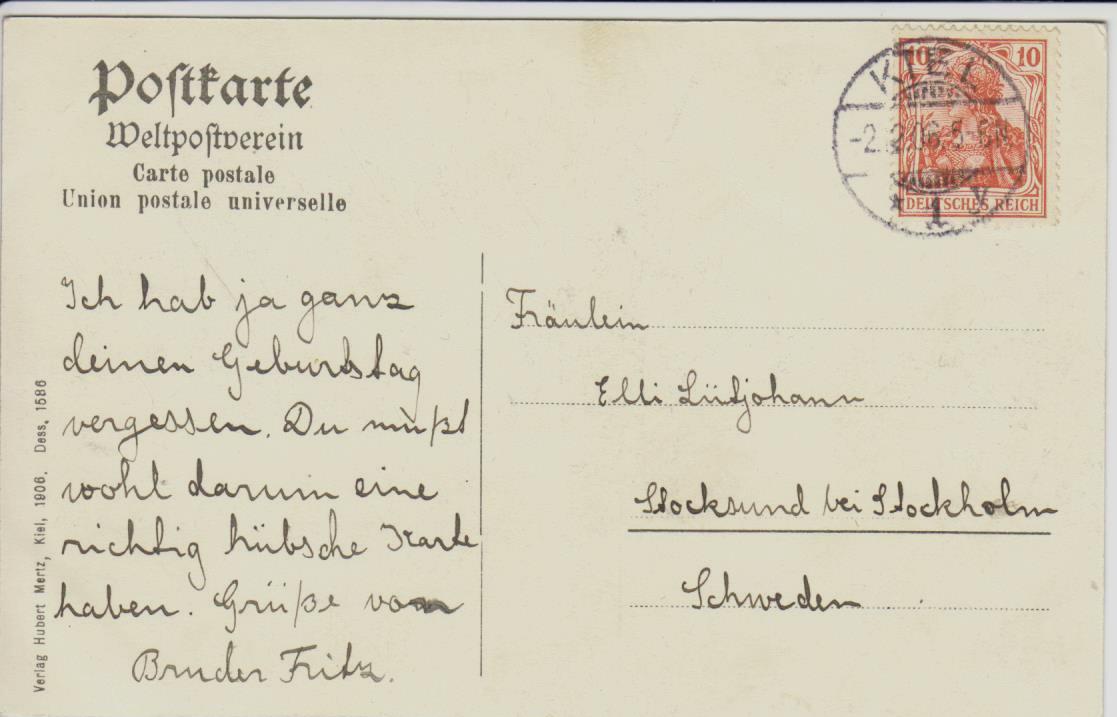 Postkarte
Weltpostverein
Carte postale
Union postale universelle
10 10
DEUTSCHES REICH
KIEL
-2.2.06.5-6N.
* 1 v
Ich hab ja ganz
deinen Geburtstag
vergessen. Du mußt
wohl darum eine
richtig hübsche Karte
haben. Grüße vom
Bruder Fritz.
Fräulein
Elli Lütjohann
Stocksund bei Stockholm
Schweden
Verlag Hubert Mertz, Kiel, 1906. Dess. 1586